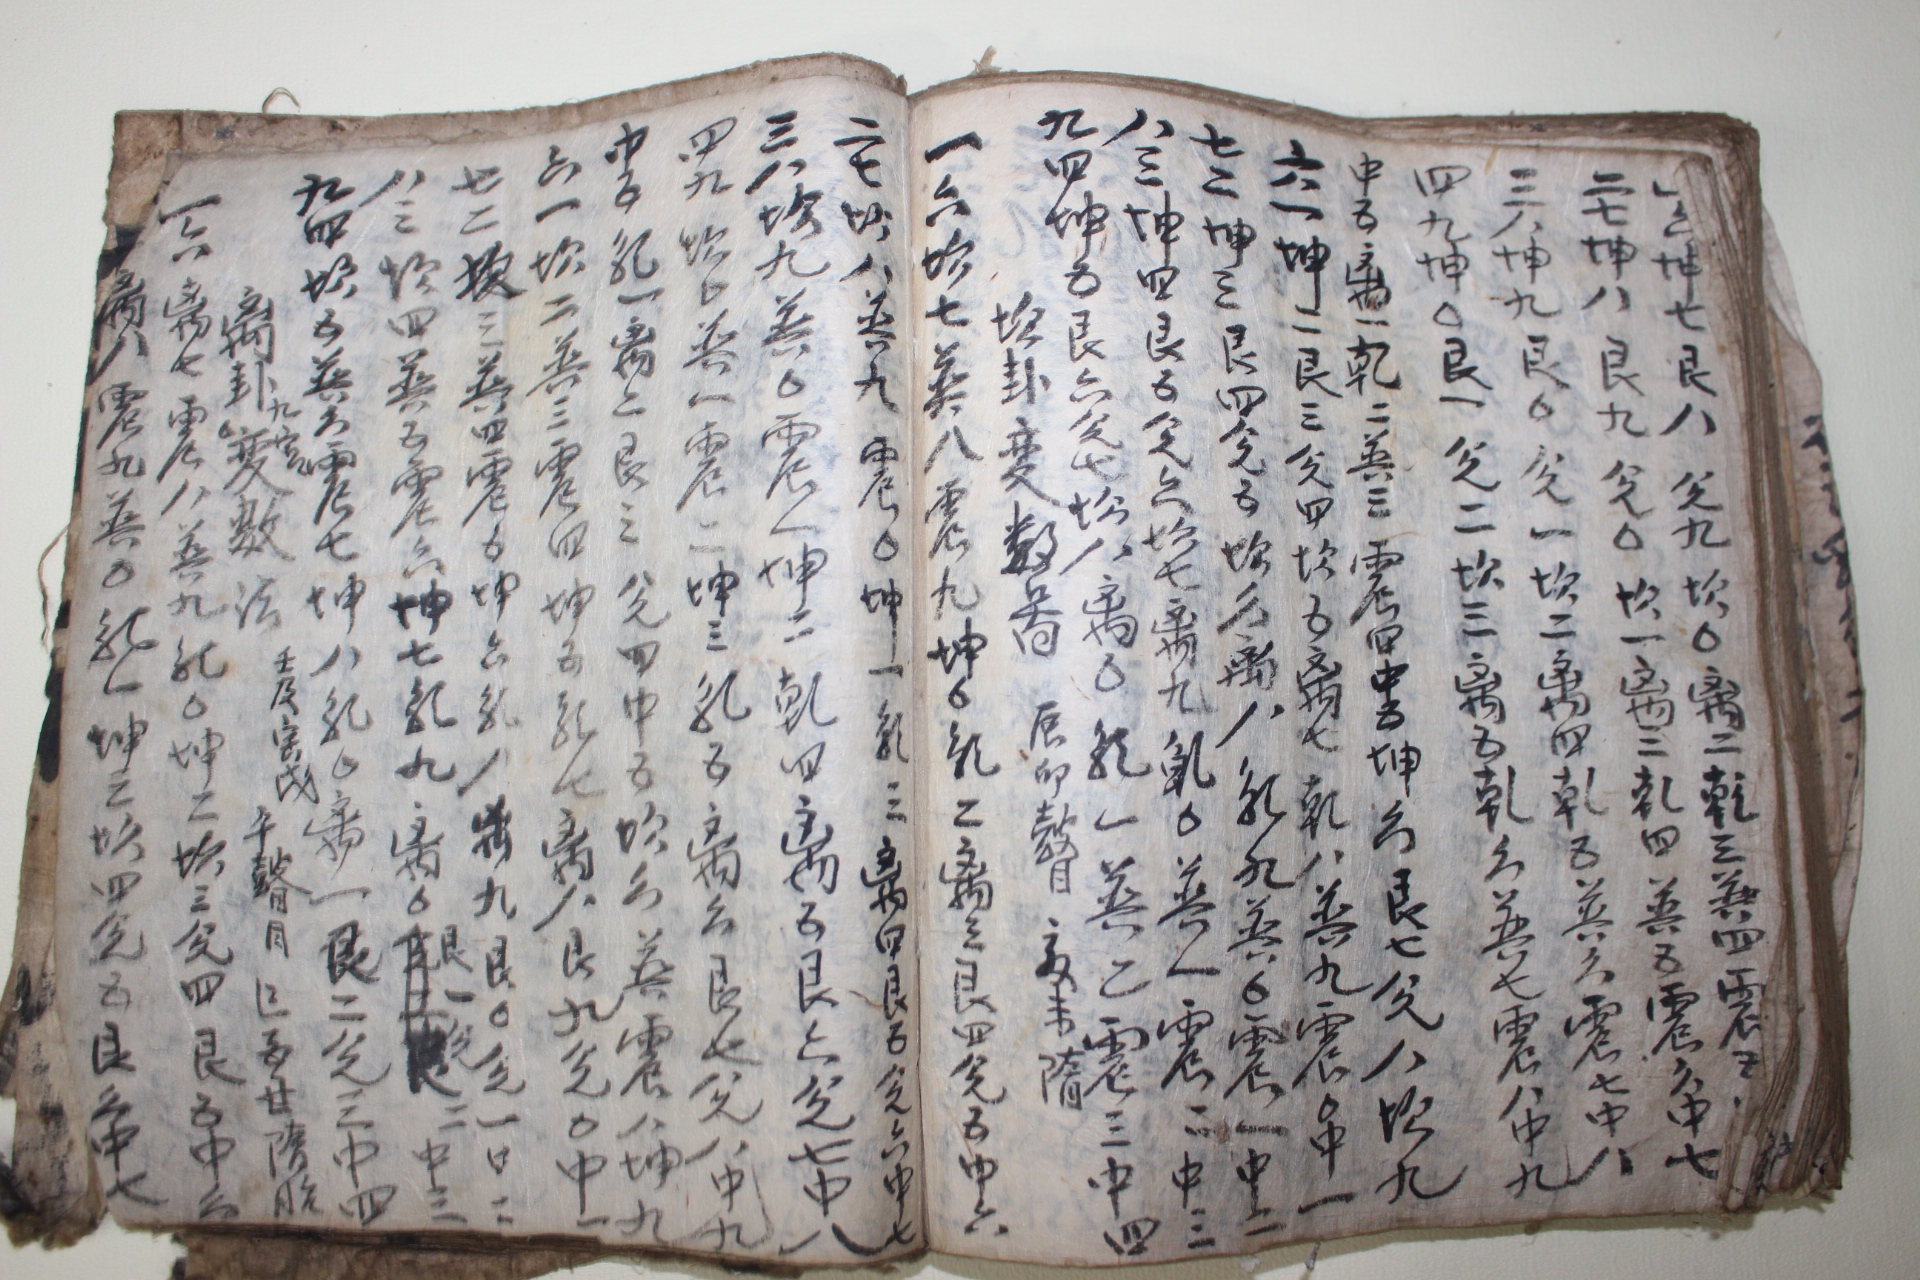 坤七艮八兌九坎〇离二乾三巽四震五
二七坤八艮九兌〇坎一离三乾四巽五震六中七
三八坤九艮〇兌一坎二离四乾五巽六震七中八
四九坤〇艮一兌二坎三离五乾六巽七震八中九
中五离一乾二巽三震四中五坤六艮七兌八坎九
六一坤二艮三兌四坎五离七乾八巽九震〇中一
七二坤三艮四兌五坎六离八乾九巽〇震一中二
八三坤四艮五兌六坎七离九乾〇巽一震二中三
九四坤五艮六兌七坎八离〇乾一巽二震三中四
坎卦变数 辰卯 未
一六坎七巽八震九坤〇乾二离三艮四兌五中六
二七坎八巽九震〇坤一乾三离四艮五兌六中七
三八坎九巽〇震一坤二乾四离五艮六兌七中八
四九坎〇巽一震二坤三乾五离六艮七兌八中九
中五乾一离二艮三兌四中五坎六巽震八坤九
六一坎二巽三震四坤五乾七离八艮九兌〇中一
七二坎三巽四震五坤六乾八离九艮〇兌一中二
八三坎四巽五震六坤七乾九离〇艮一兌二中三
九四坎五巽六震七坤八乾〇离一艮二兌三中四
离卦变数法
一六离七震八巽九乾〇坤二坎三兌四艮五中六
离八震九巽〇乾一坤三坎四兌五艮六中七